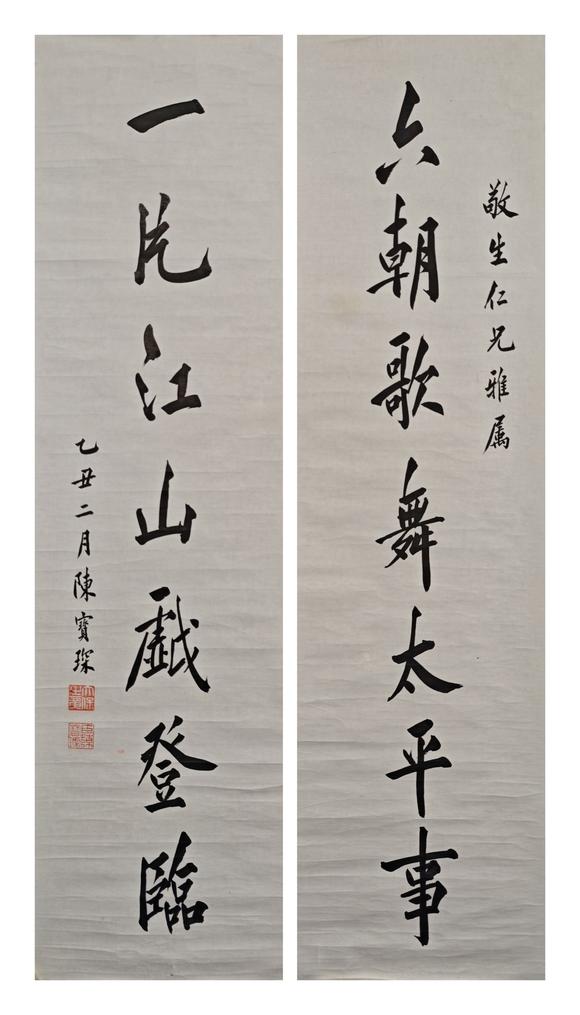 敬生仁兄雅属
六朝歌舞太平事
一片江山戲登臨
乙丑二月陳寶琛